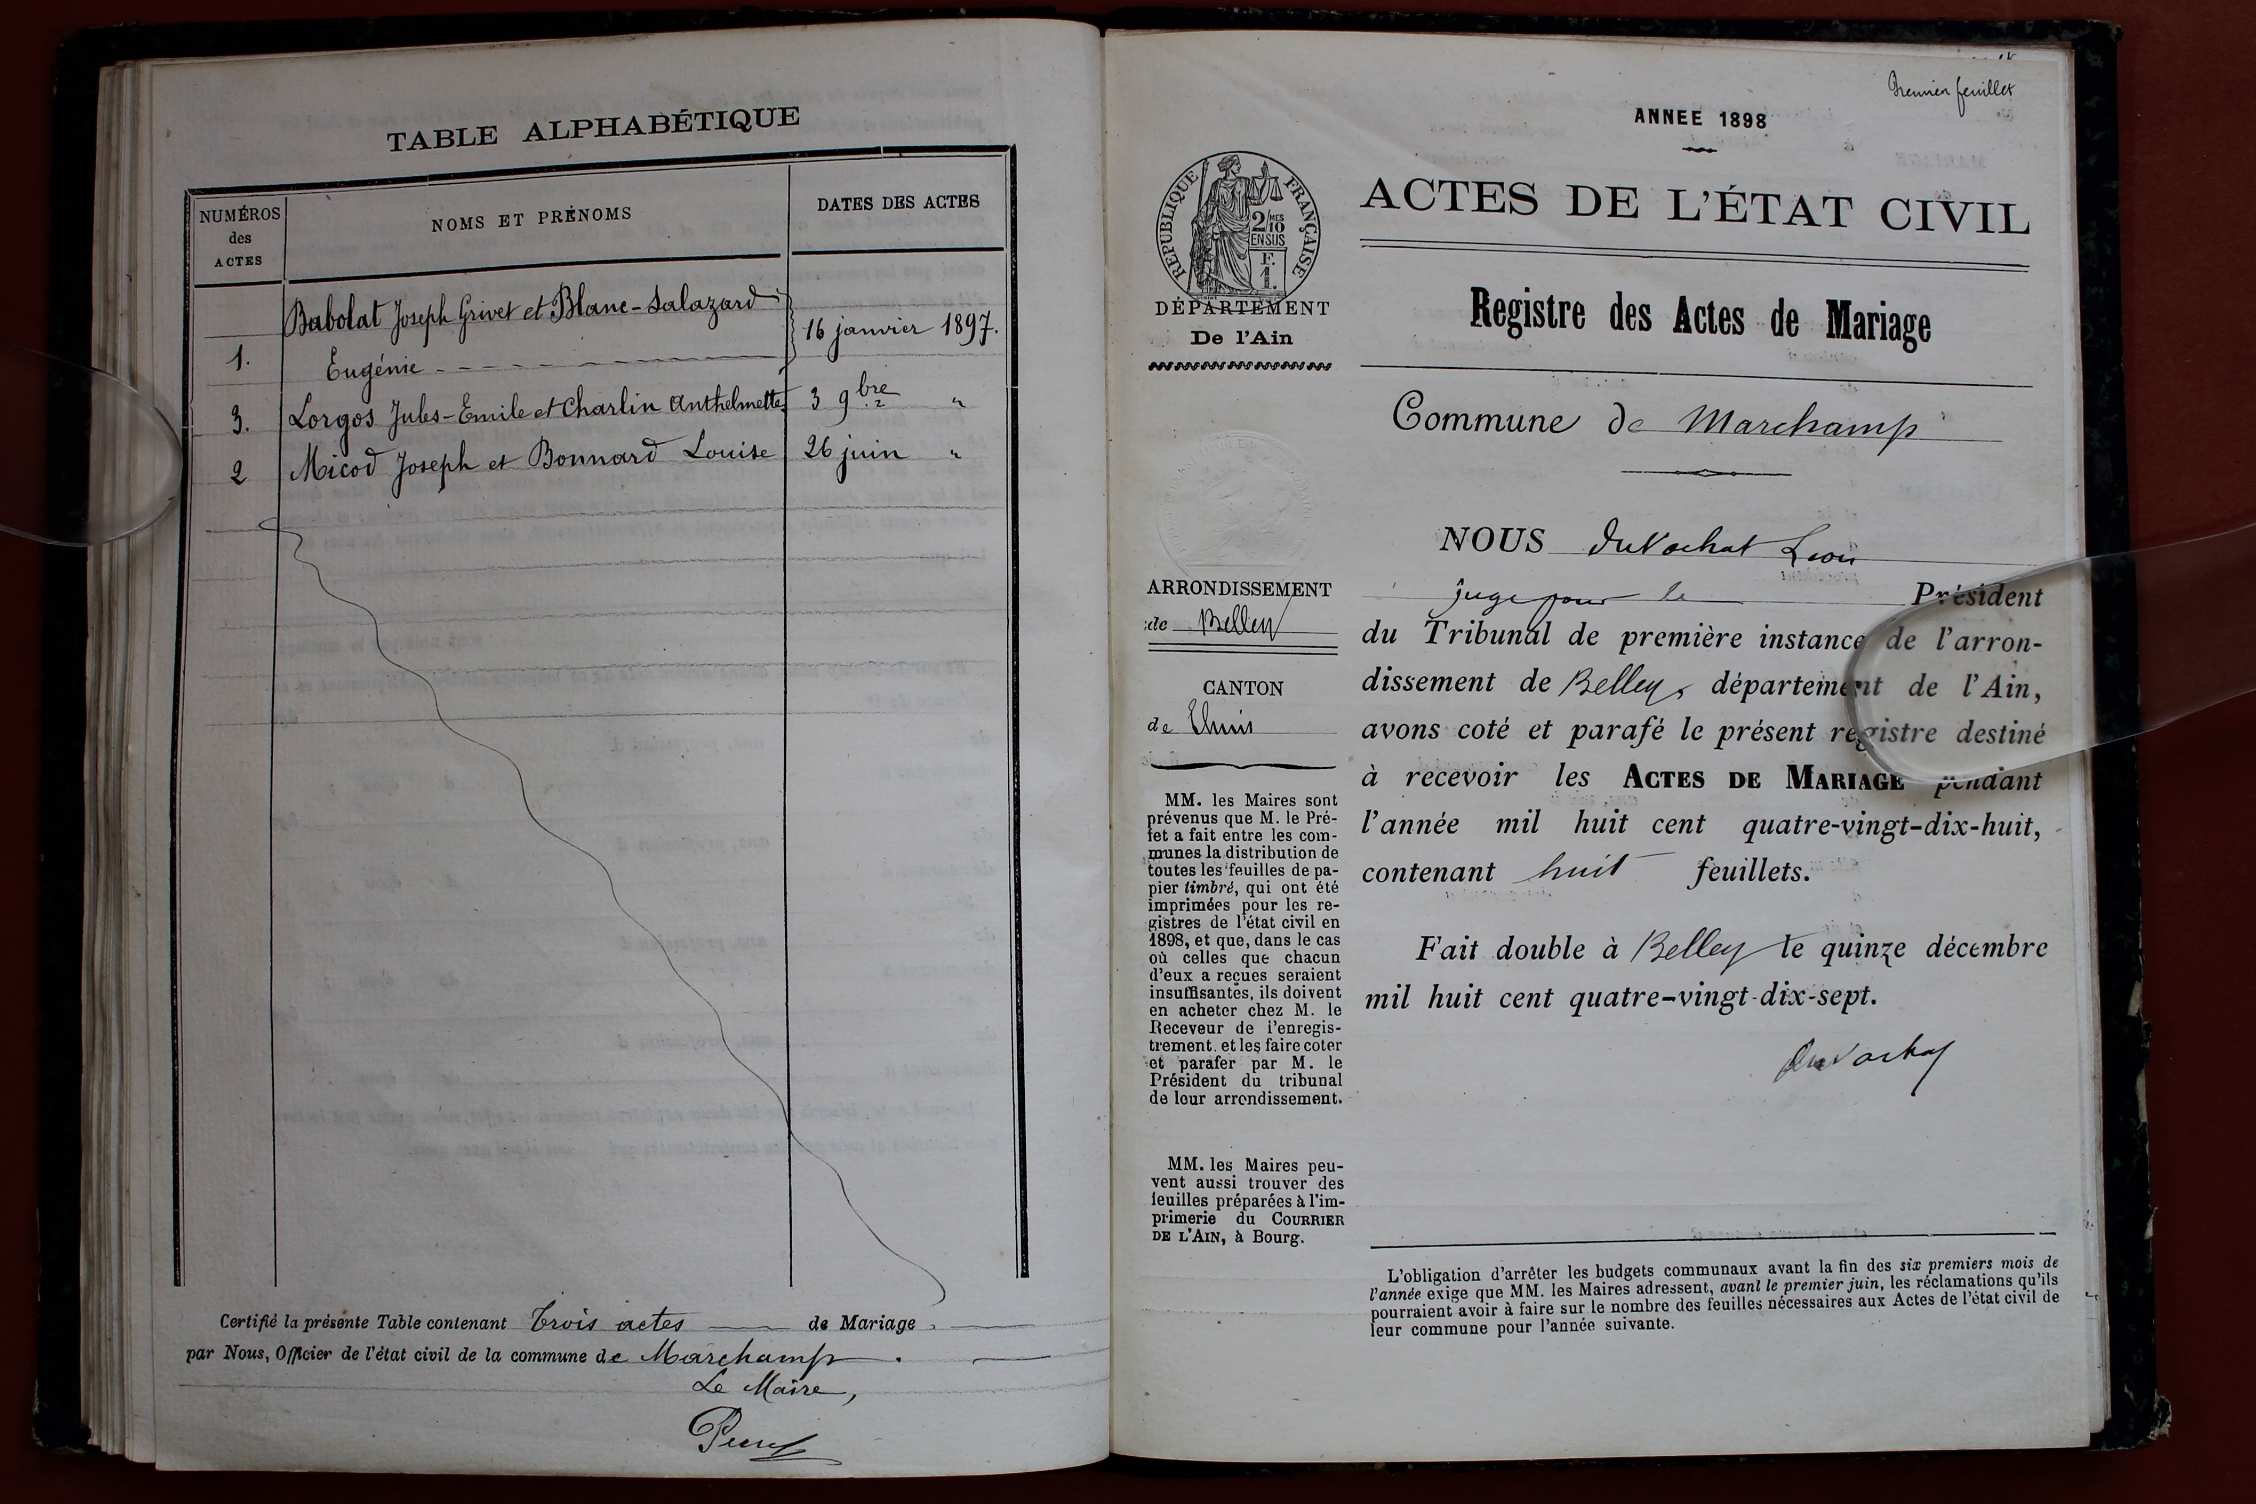 TABLE ALPHABÉTIQUE
NUMÉROS
des
ACTES
NOMS ET PRÉNOMS
DATES DES ACTES
Babolat Joseph Grivet et Blanc-Salazard
1.
Eugénie
16 janvier 1897.
3. Lorgos Jules-Emile et Charlin Anthelmette 3 9bre "
2 Micod Joseph et Bonnard Louise 26 juin "
Certifié la présente Table contenant trois actes de Mariage
par Nous, Officier de l'état civil de la commune de Marchamp.
Le Maire,
Premier feuillet
ANNEE 1898
RÉPUBLIQUE FRANÇAISE
2 MES
10
EN SUS
F.
1.
DÉPARTEMENT
De l'Ain
ARRONDISSEMENT
de Belley
CANTON
de Lhuis
MM. les Maires sont
prévenus que M. le Pré-
fet a fait entre les com-
munes la distribution de
toutes les feuilles de pa-
pier timbré, qui ont été
imprimées pour les re-
gistres de l'état civil en
1898, et que, dans le cas
où celles que chacun
d'eux a reçues seraient
insuffisantes, ils doivent
en acheter chez M. le
Receveur de l'enregis-
trement. et les faire coter
et parafer par M. le
Président du tribunal
de leur arrondissement.
MM. les Maires peu-
vent aussi trouver des
feuilles préparées à l'im-
primerie du COURRIER
DE L'AIN, à Bourg.
ACTES DE L'ÉTAT CIVIL
Registre des Actes de Mariage
Commune de Marchamp
NOUS DuVachat Léon
juge pour le Président
du Tribunal de première instance de l'arron-
dissement de Belley, département de l'Ain,
avons coté et parafé le présent registre destiné
à recevoir les ACTES DE MARIAGE pendant
l'année mil huit cent quatre-vingt-dix-huit,
contenant huit feuillets.
Fait double à Belley le quinze décembre
mil huit cent quatre-vingt-dix-sept.
DuVachat
L'obligation d'arrêter les budgets communaux avant la fin des six premiers mois de
l'année exige que MM. les Maires adressent, avant le premier juin, les réclamations qu'ils
pourraient avoir à faire sur le nombre des feuilles nécessaires aux Actes de l'état civil de
leur commune pour l'année suivante.